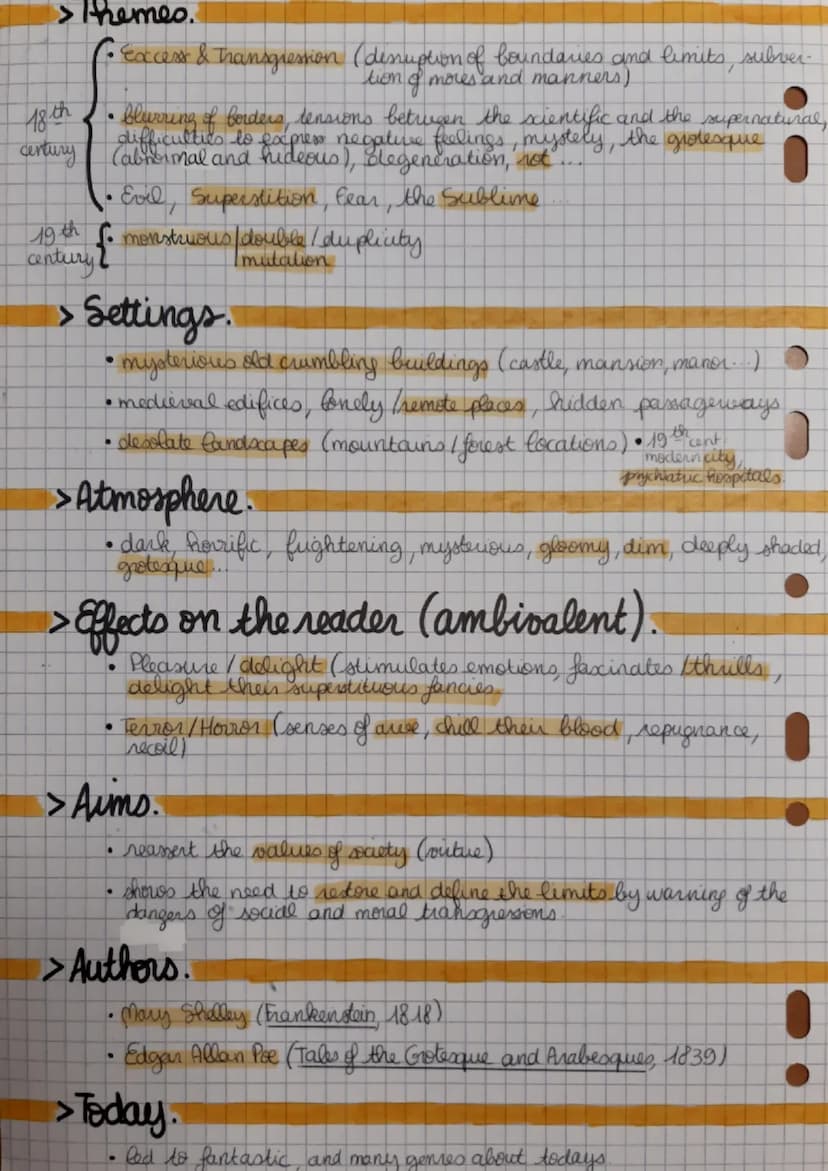 > Themes.
• Excess & Transgression (disruption of boundaries and limits, subver-
tion of mores and manners)
18th century
• blurring of borders, tensions between the scientific and the supernatural,
difficulties to express negative feelings, mystely, the grotesque
(abnormal and hideous), degeneration, rot ...
• Evil, Superstition, Fear, the Sublime
19th century
• monstruous/double/duplicity
/mutation
> Settings.
• mysterious old crumbling buildings (castle, mansion, manor...)
• medieval edifices, lonely/remote places, hidden passageways
• desolate landscapes (mountains/forest locations) • 19th cent
modern city,
psychiatric hospitals.
> Atmosphere.
• dark, horrific, frightening, mysterious, gloomy, dim, deeply shaded,
grotesque...
> Effects on the reader (ambivalent).
• Pleasure/delight (stimulates emotions, fascinates/thrills,
delight their superstituous fancies.
• Terror/Horror (senses of awe, chill their blood, repugnance,
recoil)
> Aims.
• reassert the values of society (virtue)
• shows the need to restore and define the limits by warning of the
dangers of social and moral transgressions.
> Authors.
• Mary Shelley (Frankenstein, 1818)
• Edgar Allan Poe (Tales of the Grotesque and Arabesques, 1839)
> Today.
• led to fantastic, and many genres about todays